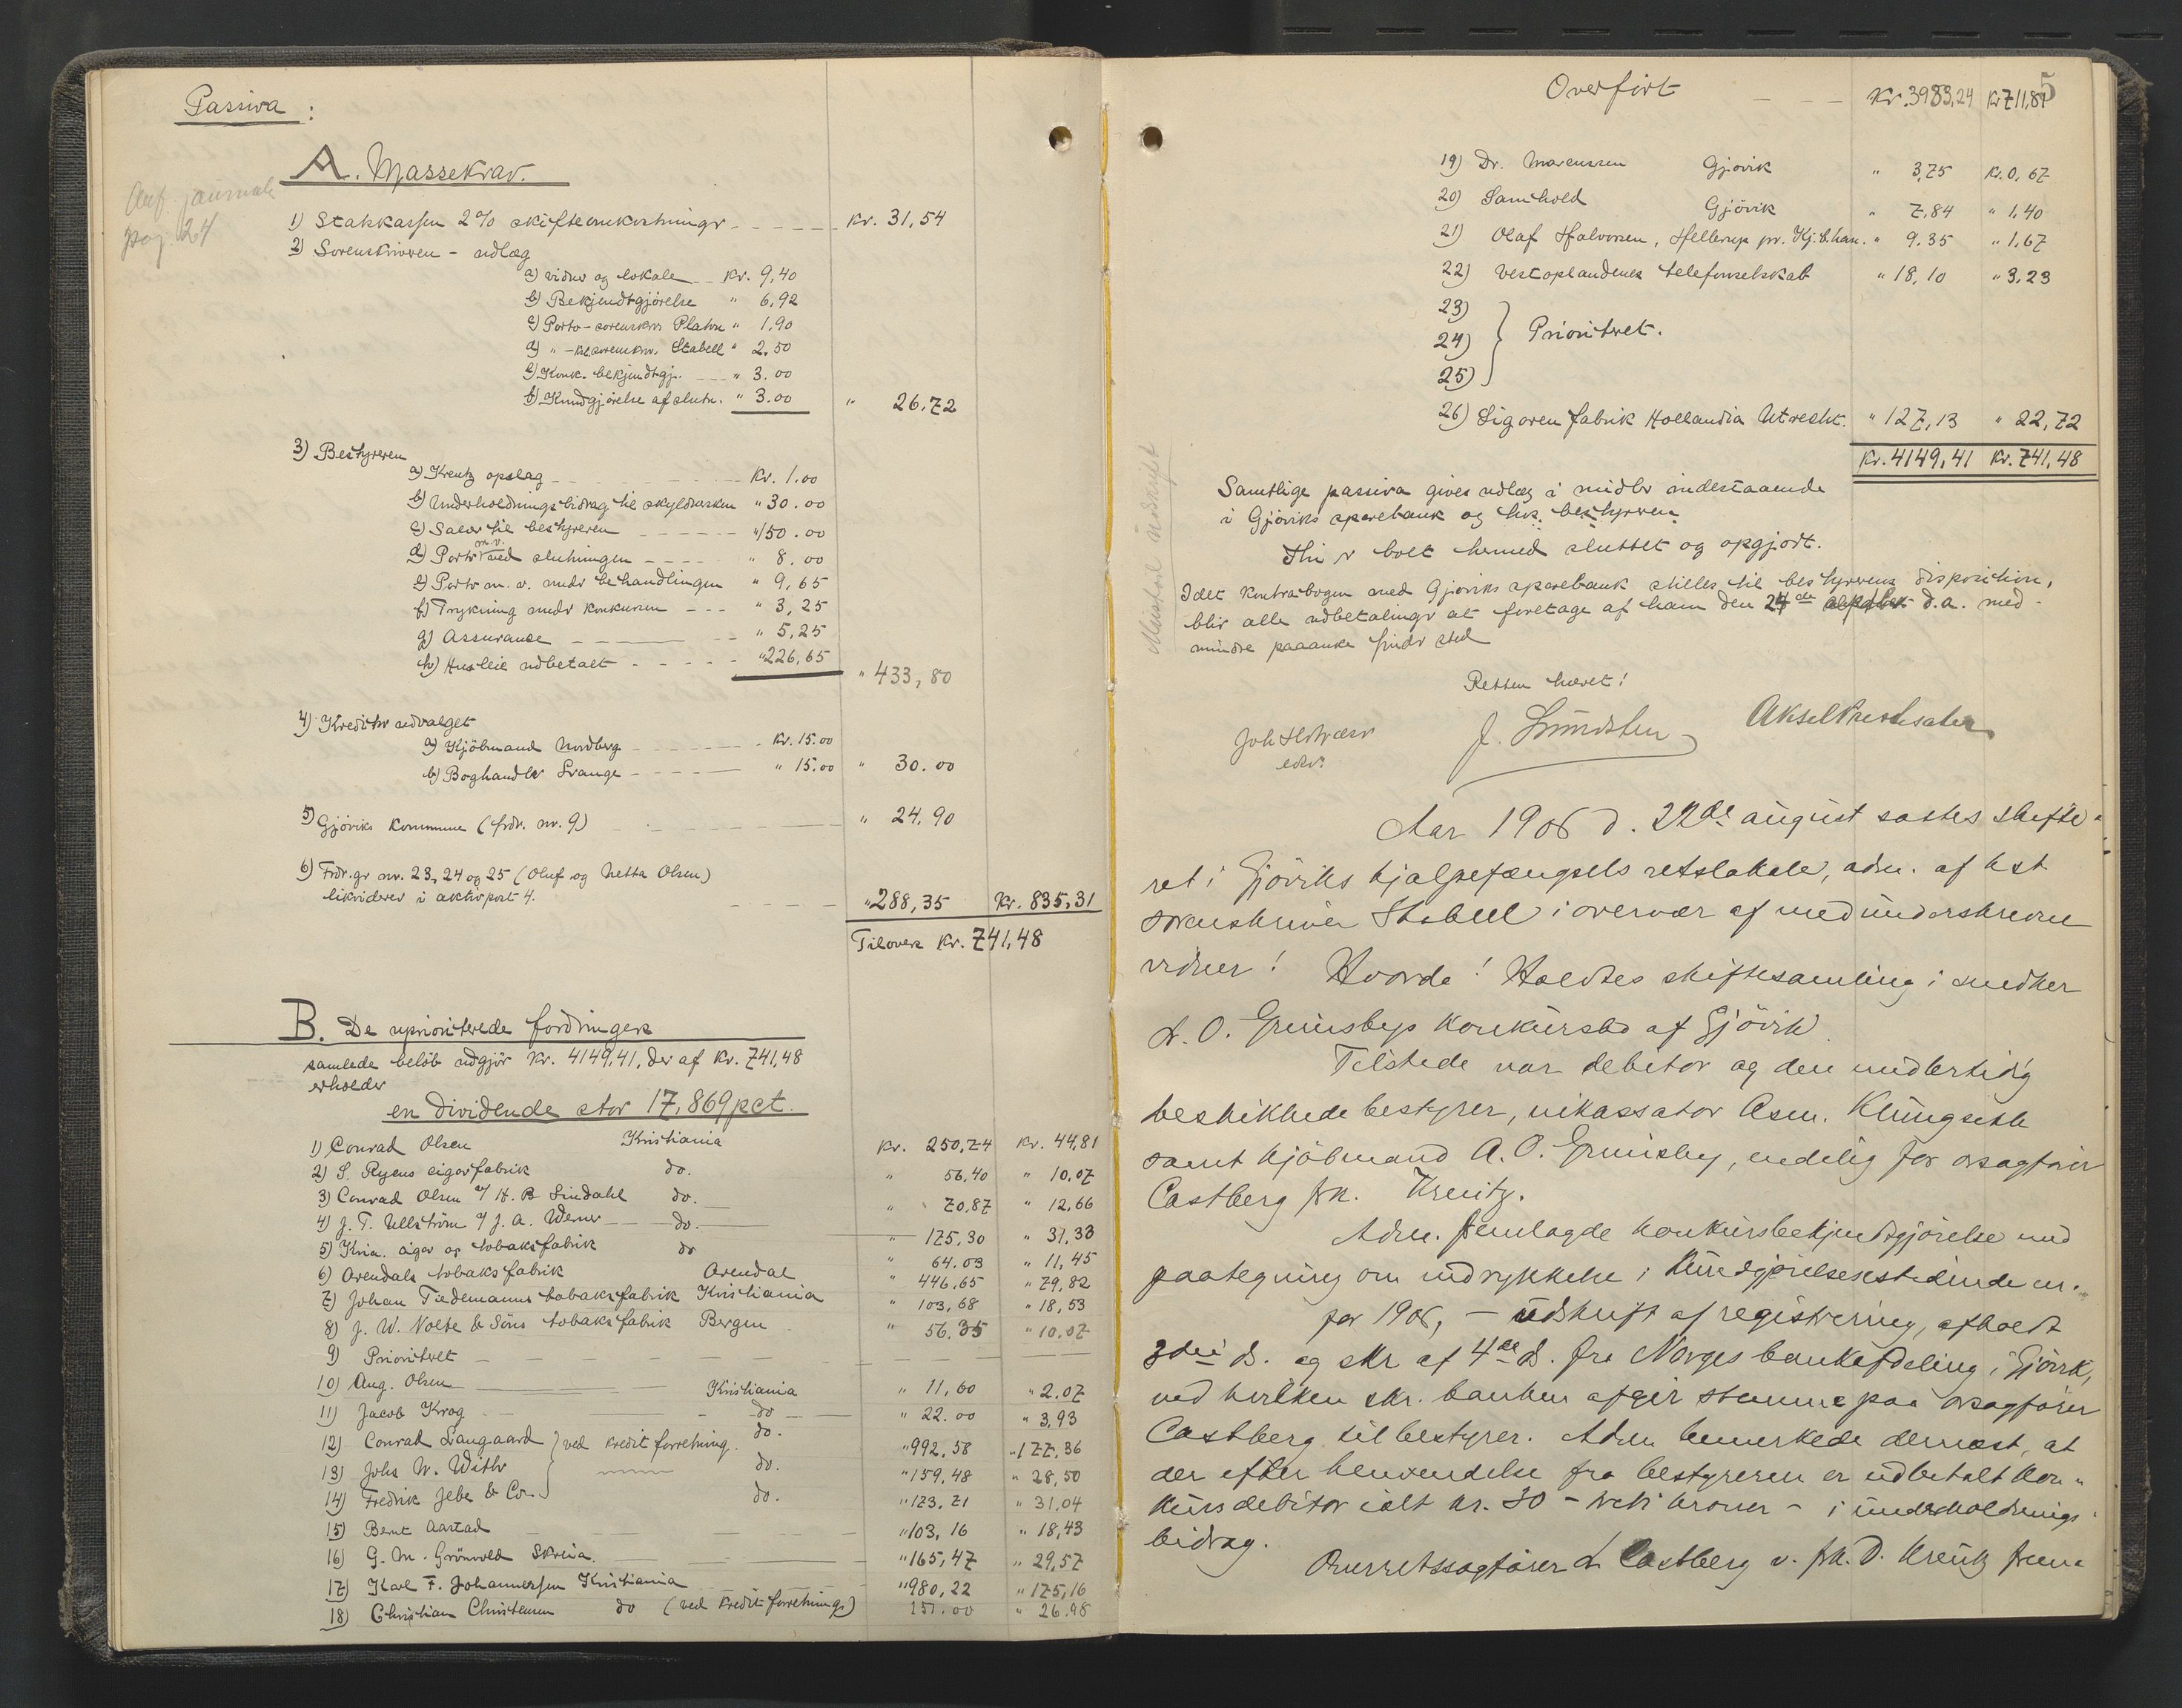 Passiva :
A. Massekrav.
Anf. journal
pag. 24
1) Statskassen 2% skifteomkostninger - - - - kr. 31,54
2) Sorenskriveren - udlæg
a) vidner og lokale - kr. 9,40
b) Bekjendtgjörelse " 6,92
c) Porto - sorenskr. Platou " 1,90
d) " - kst. sorenskr. Stabell " 2.50
e) Konk. bekjendtgj. - - " 3.00
f) Kundgjörelse af slutn. " 3.00 " 26.72
3) Bestyreren
a) Kreutz opslag - - - - kr. 1.00
b) Underholdningsbidrag til skyldneren " 30.00
c) Salær til bestyreren - - - - " 150.00
d) Porto m.v. ved slutningen - - - " 8.00
e) Porto m.v. under behandlingen " 9,65
f) Trykning under konkursen - - - " 3,25
g) Assurance - - - " 5,25
h) Husleie udbetalt - - - - - " 226,65 " 433,80
4) Kreditorudvalget
a) Kjöbmand Nordberg - - - - kr. 15.00
b) Boghandler Svange - - - - " 15.00 " 30.00
5) Gjöviks kommune (fordr. nr. 9) - - - " 24,90
6) Fordr.gr nr. 23, 24 og 25 (Oluf og Netta Olsen)
likviderer i aktivpost 4. - - - - " 288,35 Kr. 835,31
Tilovers kr. 741,48
B. De uprioriterede fordringers
samlede belöb udgjör kr. 4149,41, der af kr. 741,48
erholder
en dividende stor 17,869 pct.
1) Conrad Olsen Kristiania kr. 250,74 kr. 44,81
2) S. Ryens cigarfabrik do. " 56,40 " 10,07
3) Conrad Olsen v/ H. B. Lindahl do. " 70,87 " 12,66
4) J. T. Ullström v/ J. A. Werner do. " 175,30 " 31,33
5) Kria. cigar og tobaksfabrik do " 64.03 " 11,45
6) Arendals tobaksfabrik Arendal " 446,65 " 79,82
7) Johan Tiedemanns tobaksfabrik Kristiania " 103,68 " 18,53
8) J. W. Nolte & Söns tobaksfabrik Bergen " 56,35 " 10.07
9) Prioritert - - -
10) Aug. Olsen Kristiania " 11,60 " 2.07
11) Jacob Krog - do " 22.00 " 3,93
12) Conrad Langaard } ved kreditforretning. do. " 992,58 " 177,36
13) Johs N. Withr do. " 159,48 " 28,50
14) Fredrik Jebe & Co. do. " 173,71 " 31,04
15) Bernt Aarstad " 103,16 " 18,43
16) G. M. Grönvold Skreia. " 165,47 " 29,57
17) Karl F. Johannessen Kristiania " 980,22 " 175,16
18) Christian Christensen do (ved kreditforretnings) 151.00 " 26.98
5
Overfört - - - kr. 3983,24 kr 711,81
19) Dr. Marcussen Gjövik " 3,75 kr. 0,67
20) Samhold Gjövik " 7,84 " 1,40
21) Olaf Halvorsen, Hellerup pr. Kj.b.havn. " 9.35 " 1,67
22) Vestoplandenes telefonselskab " 18,10 " 3,23
23)
24) } Prioritert.
25)
26) Sigarenfabrik Hollandia Utrecht. " 127,13 " 22,72
Kr. 4149,41 Kr. 741,48
Samtlige passiva gives udlæg i midler indestaaende
i Gjöviks sparebank og hos bestyreren.
Thi er boet hermed sluttet og opgjort.
Idet kontrabogen med Gjöviks sparebank stilles til bestyrerens disposition,
blir alle udbetalinger at foretage af ham den 24de d.a. med-
mindre paaanke finder sted
udskrift
Retten hævet!
J. Lundsten
Aar 1906 d. 22de august sattes skifte-
ret i Gjöviks hjælpefængsels retslokale, adm. af kst.
sorenskriver Stabell i overvær af medunderskrevne
vidner! Hvorda! Holdtes skiftesamling i snedker
A. O. Grimsbys konkursbo af Gjövik.
Tilstede var debitor og den midlertidig
beskikkede bestyrer, inkassator Asm. Klungseth
samt kjöbmand A. O. Grimsby, endelig for orsagförer
Castberg frk. Kreutz.
Adm. fremlagde konkursbekjendtgjörelse med
paategning om indrykkelse i Kundgjörelsestidende nr.
for 1906, - udskrift af registrering, afholdt
3die ds. og skr. af 4de ds. fra Norges bankafdeling i Gjövik,
ved hvilken skr. banken afgir stemme paa orsagförer
Castberg til bestyrer. Adm. bemerkede dernæst, at
der efter henvendelse fra bestyreren er udbetalt kon-
kursdebitor ialt kr. 30 - treti kroner - i underholdnings-
bidrag.
Overretssagförer L Castberg v. frk. D. Kreutz frem-